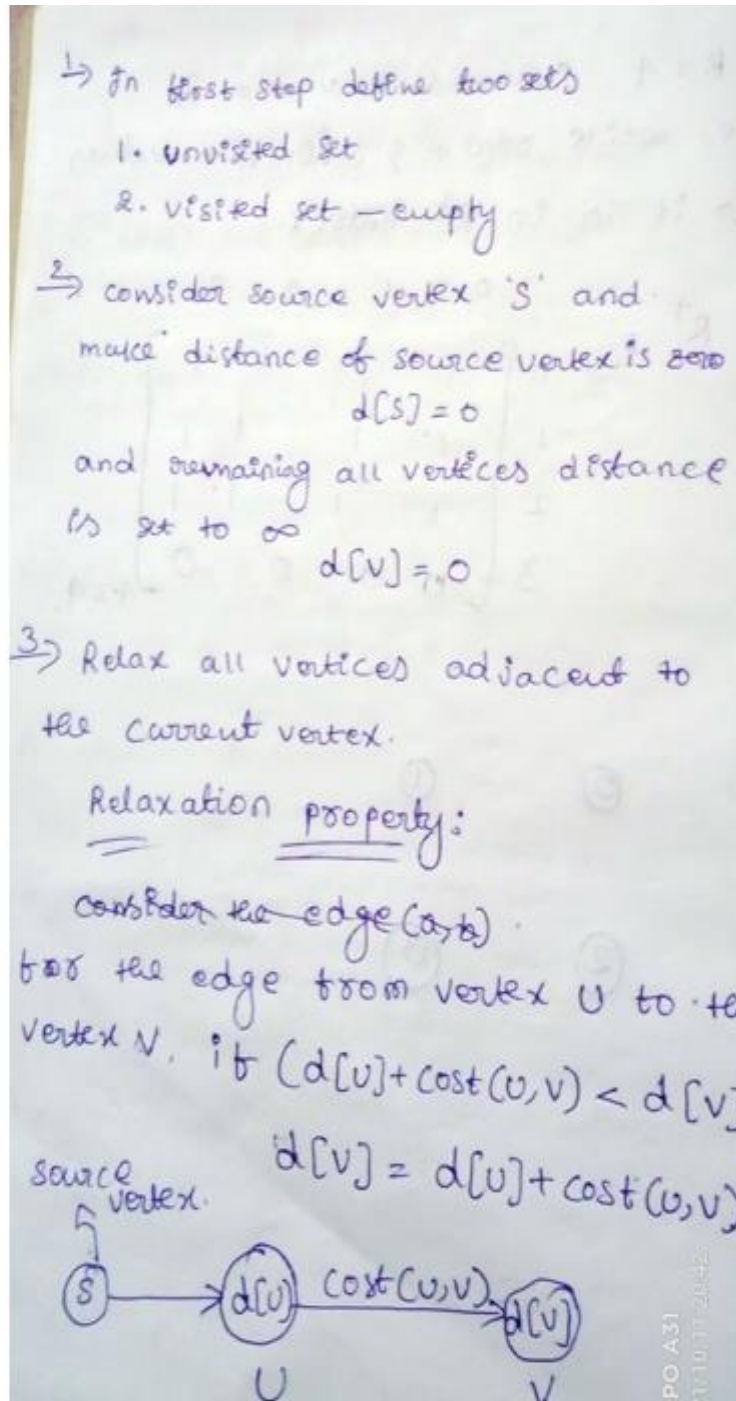 1→ In first step define two sets
1. unvisited set
2. visited set - empty
2→ consider source vertex 'S' and
make distance of source vertex is zero
d[S] = 0
and remaining all vertices distance
is set to ∞
d[V] = 0
3→ Relax all vertices adjacent to
the current vertex.
Relaxation property:
consider the edge (a,b)
for the edge from vertex U to the
vertex V. if (d[U] + cost(U,V) < d[V]
d[V] = d[U] + cost(U,V)
source
vertex.
S
d[U]
cost(U,V)
d[V]
U
V
PO A31